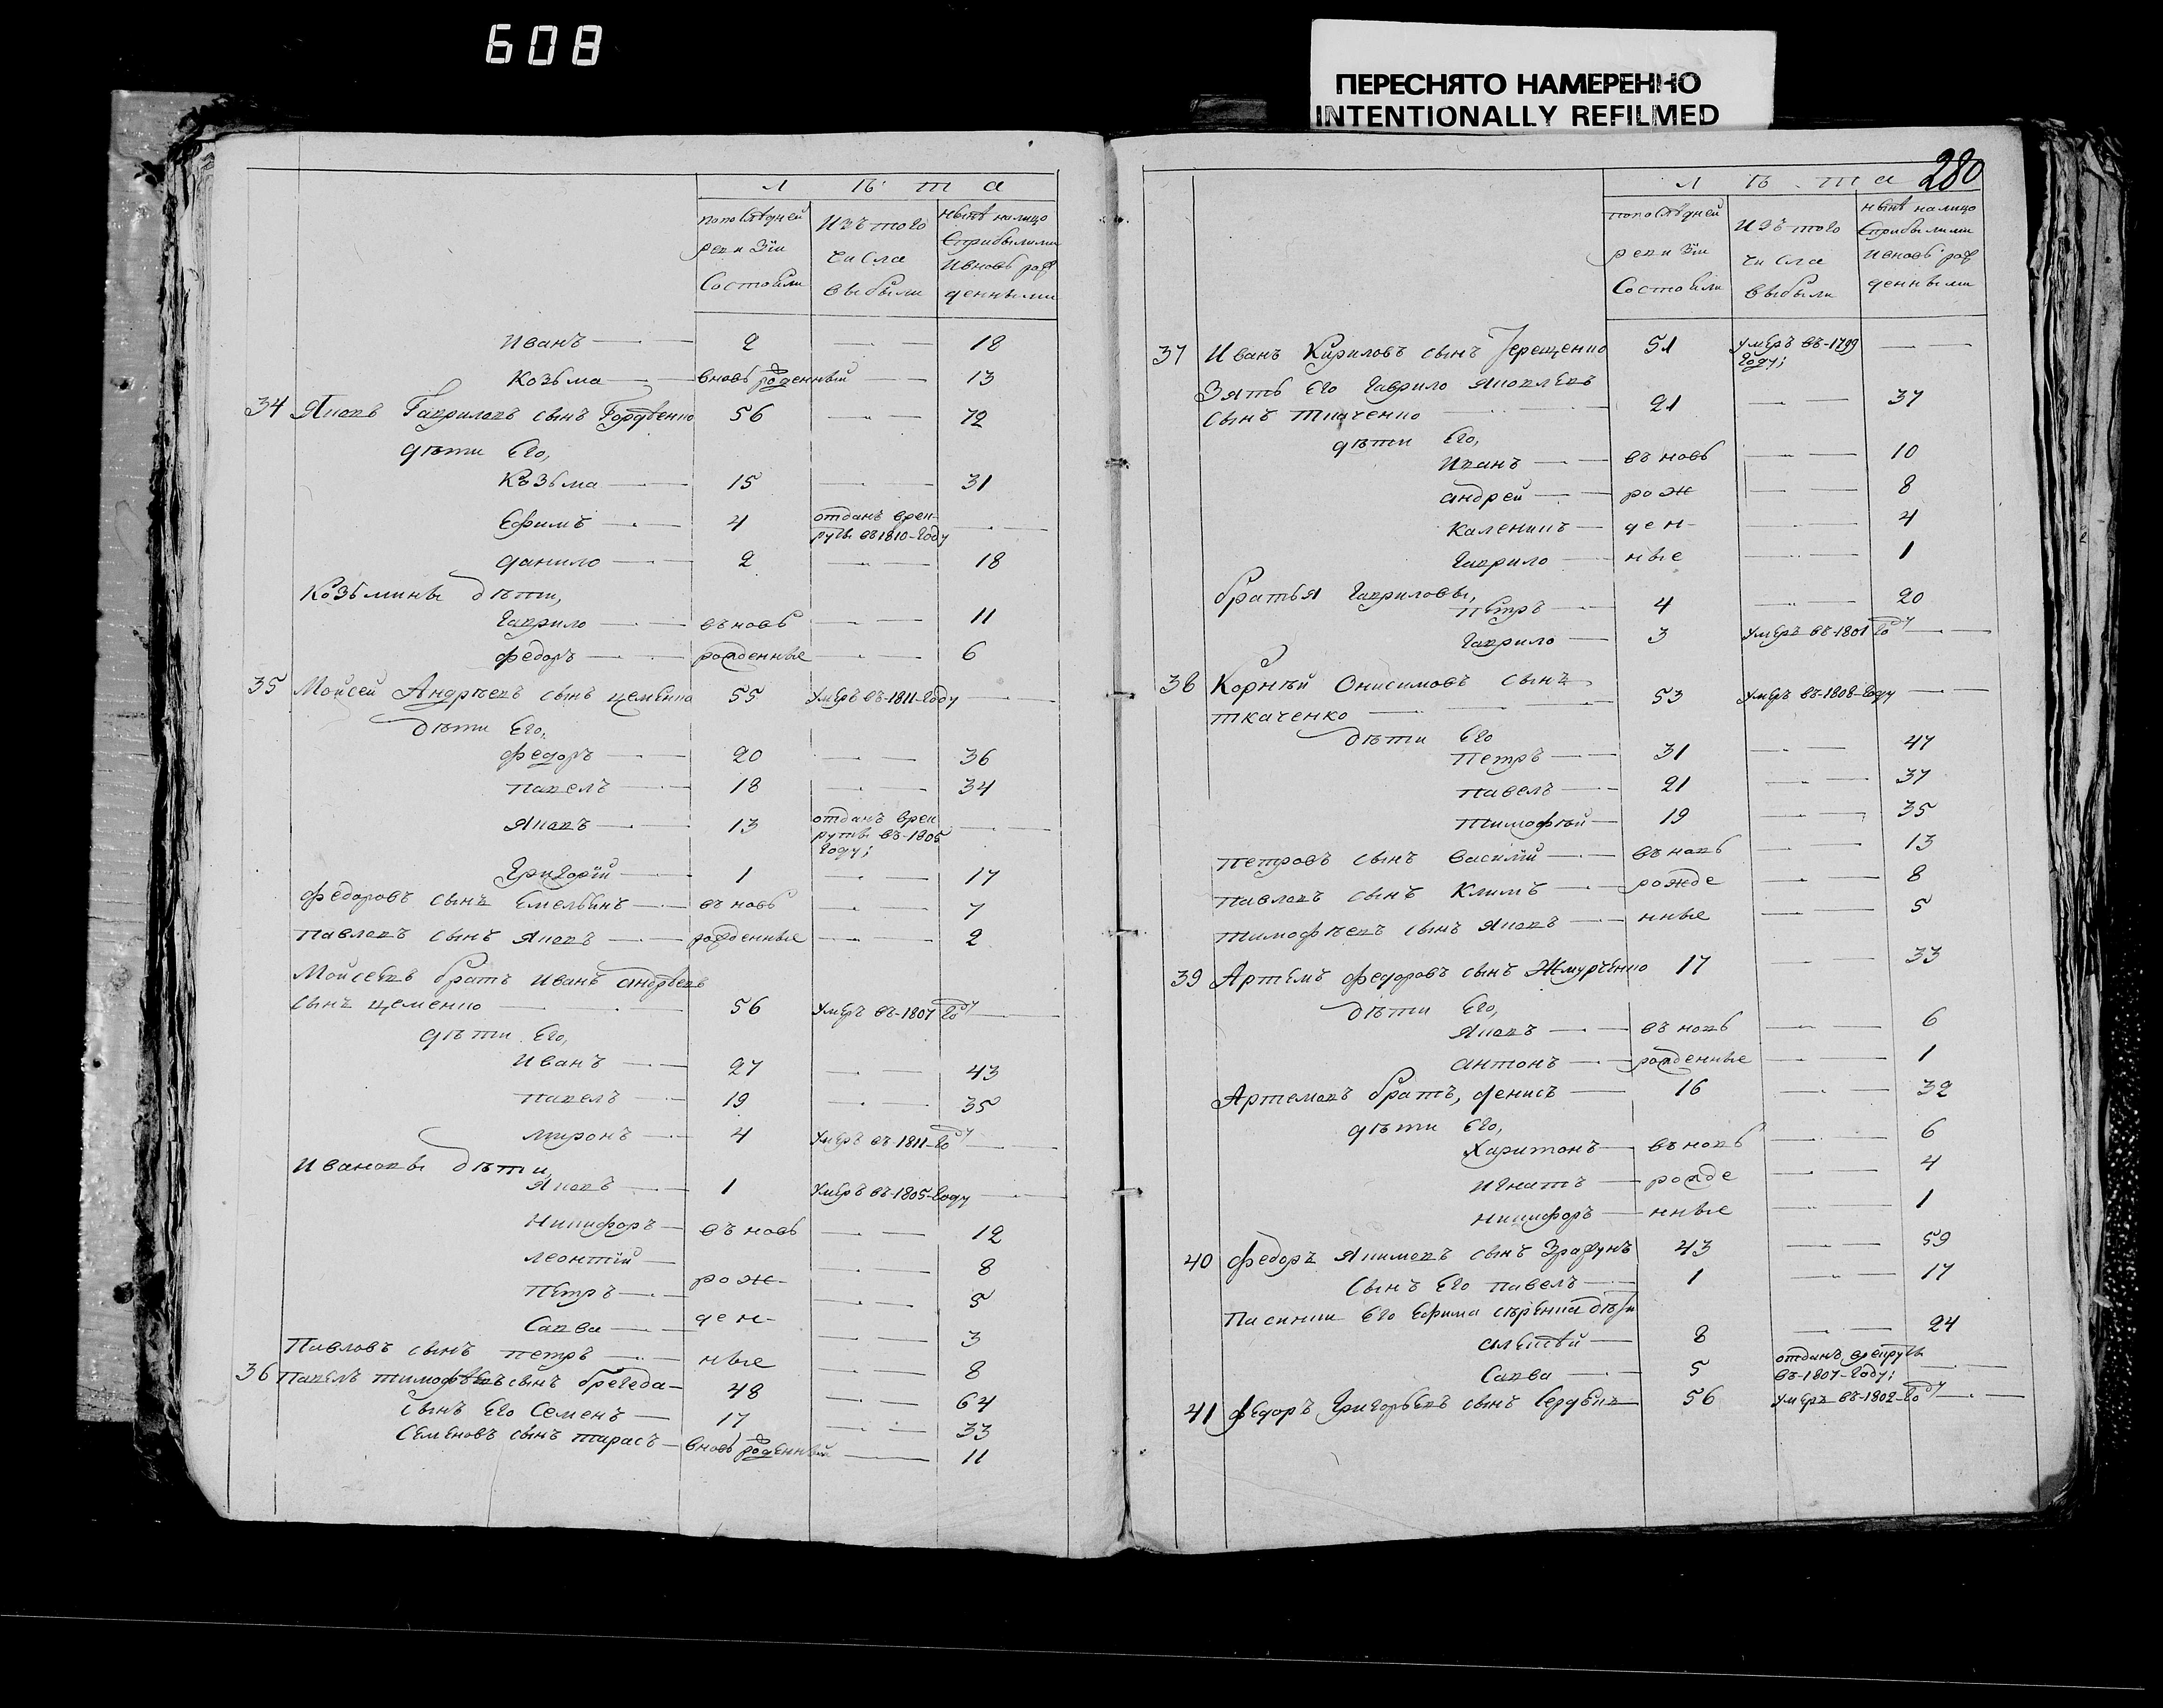 608
ПЕРЕСНЯТО НАМЕРЕННО
INTENTIONALLY REFILMED
Л ѣ т а
попослѣдней ревизіи состояли
Изъ того числа выбыли
нынѣ налицо сприбылими ивновь рожденными
Иванъ 2 18
Козьма вновь рожденный 13
34 Яковъ Гавриловъ сынъ Гордѣенко 56 72
дѣти Его,
Козьма 15 31
Ефимъ 4 отданъ врекруты въ 1810-году
данило 2 18
Козьмины дѣти,
гаврило въновь 11
федоръ рожденные 6
35 Мойсей Андрѣевъ сынъ 55 умеръ въ-1811-году
дѣти Его,
федоръ 20 36
павелъ 18 34
Яковъ 13 отданъ врекруты въ-1805 году;
григорій 1 17
федоровъ сынъ Емельянъ въновь 7
павловъ сынъ Яковъ рожденные 2
Мойсеевъ братъ Иванъ андрѣевъ
сынъ цеменко 56 умеръ въ-1807 году
дѣти Его,
Иванъ 27 43
павелъ 19 35
миронъ 4 умеръ въ-1811-году
Ивановы дѣти,
Яковъ 1 умеръ въ-1805-году
Никифоръ въновь 12
леонтій 8
Петръ рож- 5
Савва ден- 3
Павловъ сынъ петръ ные 8
36 Павелъ тимофѣевъ сынъ 48 64
сынъ Его Семенъ 17 33
Семеновъ сынъ тарасъ вновь рожденный 11
280
Л ѣ т а
попослѣдней ревизіи состояли
Изъ того числа выбыли
нынѣ налицо сприбылими ивновь рожденными
37 Иванъ Кириловъ сынъ Терещенко 51 умеръ въ-1799 году;
Зять Его Гаврило Яковлевъ
сынъ ткаченко 21 37
дѣти Его,
Иванъ въновь 10
андрей рож 8
каленикъ ден- 4
гаврило ные 1
братья гавриловы,
петръ 4 20
гаврило 3 умеръ въ-1801 году
38 Корнѣй Онисимовъ сынъ
ткаченко 53 умеръ въ-1808-году
дѣти Его
петръ 31 47
павелъ 21 37
тимофѣй 19 35
петровъ сынъ василій въновь 13
павловъ сынъ климъ рожде 8
тимофѣевъ сынъ Яковъ нные 5
39 Артемъ федоровъ сынъ Жмурченко 17 33
дѣти Его,
Яковъ въновь 6
антонъ рожденные 1
Артемовъ братъ, денисъ 16 32
дѣти Его,
Харитонъ въновь 6
игнатъ рожде 4
никифоръ нные 1
40 федоръ Якимовъ сынъ 43 59
сынъ Его павелъ 1 17
Пасинки Его Ефима дѣти
алексѣй 8 24
Савва 5 отданъ врекруты въ-1807-году;
41 федоръ григорьевъ сынъ 56 умеръ въ-1802-году